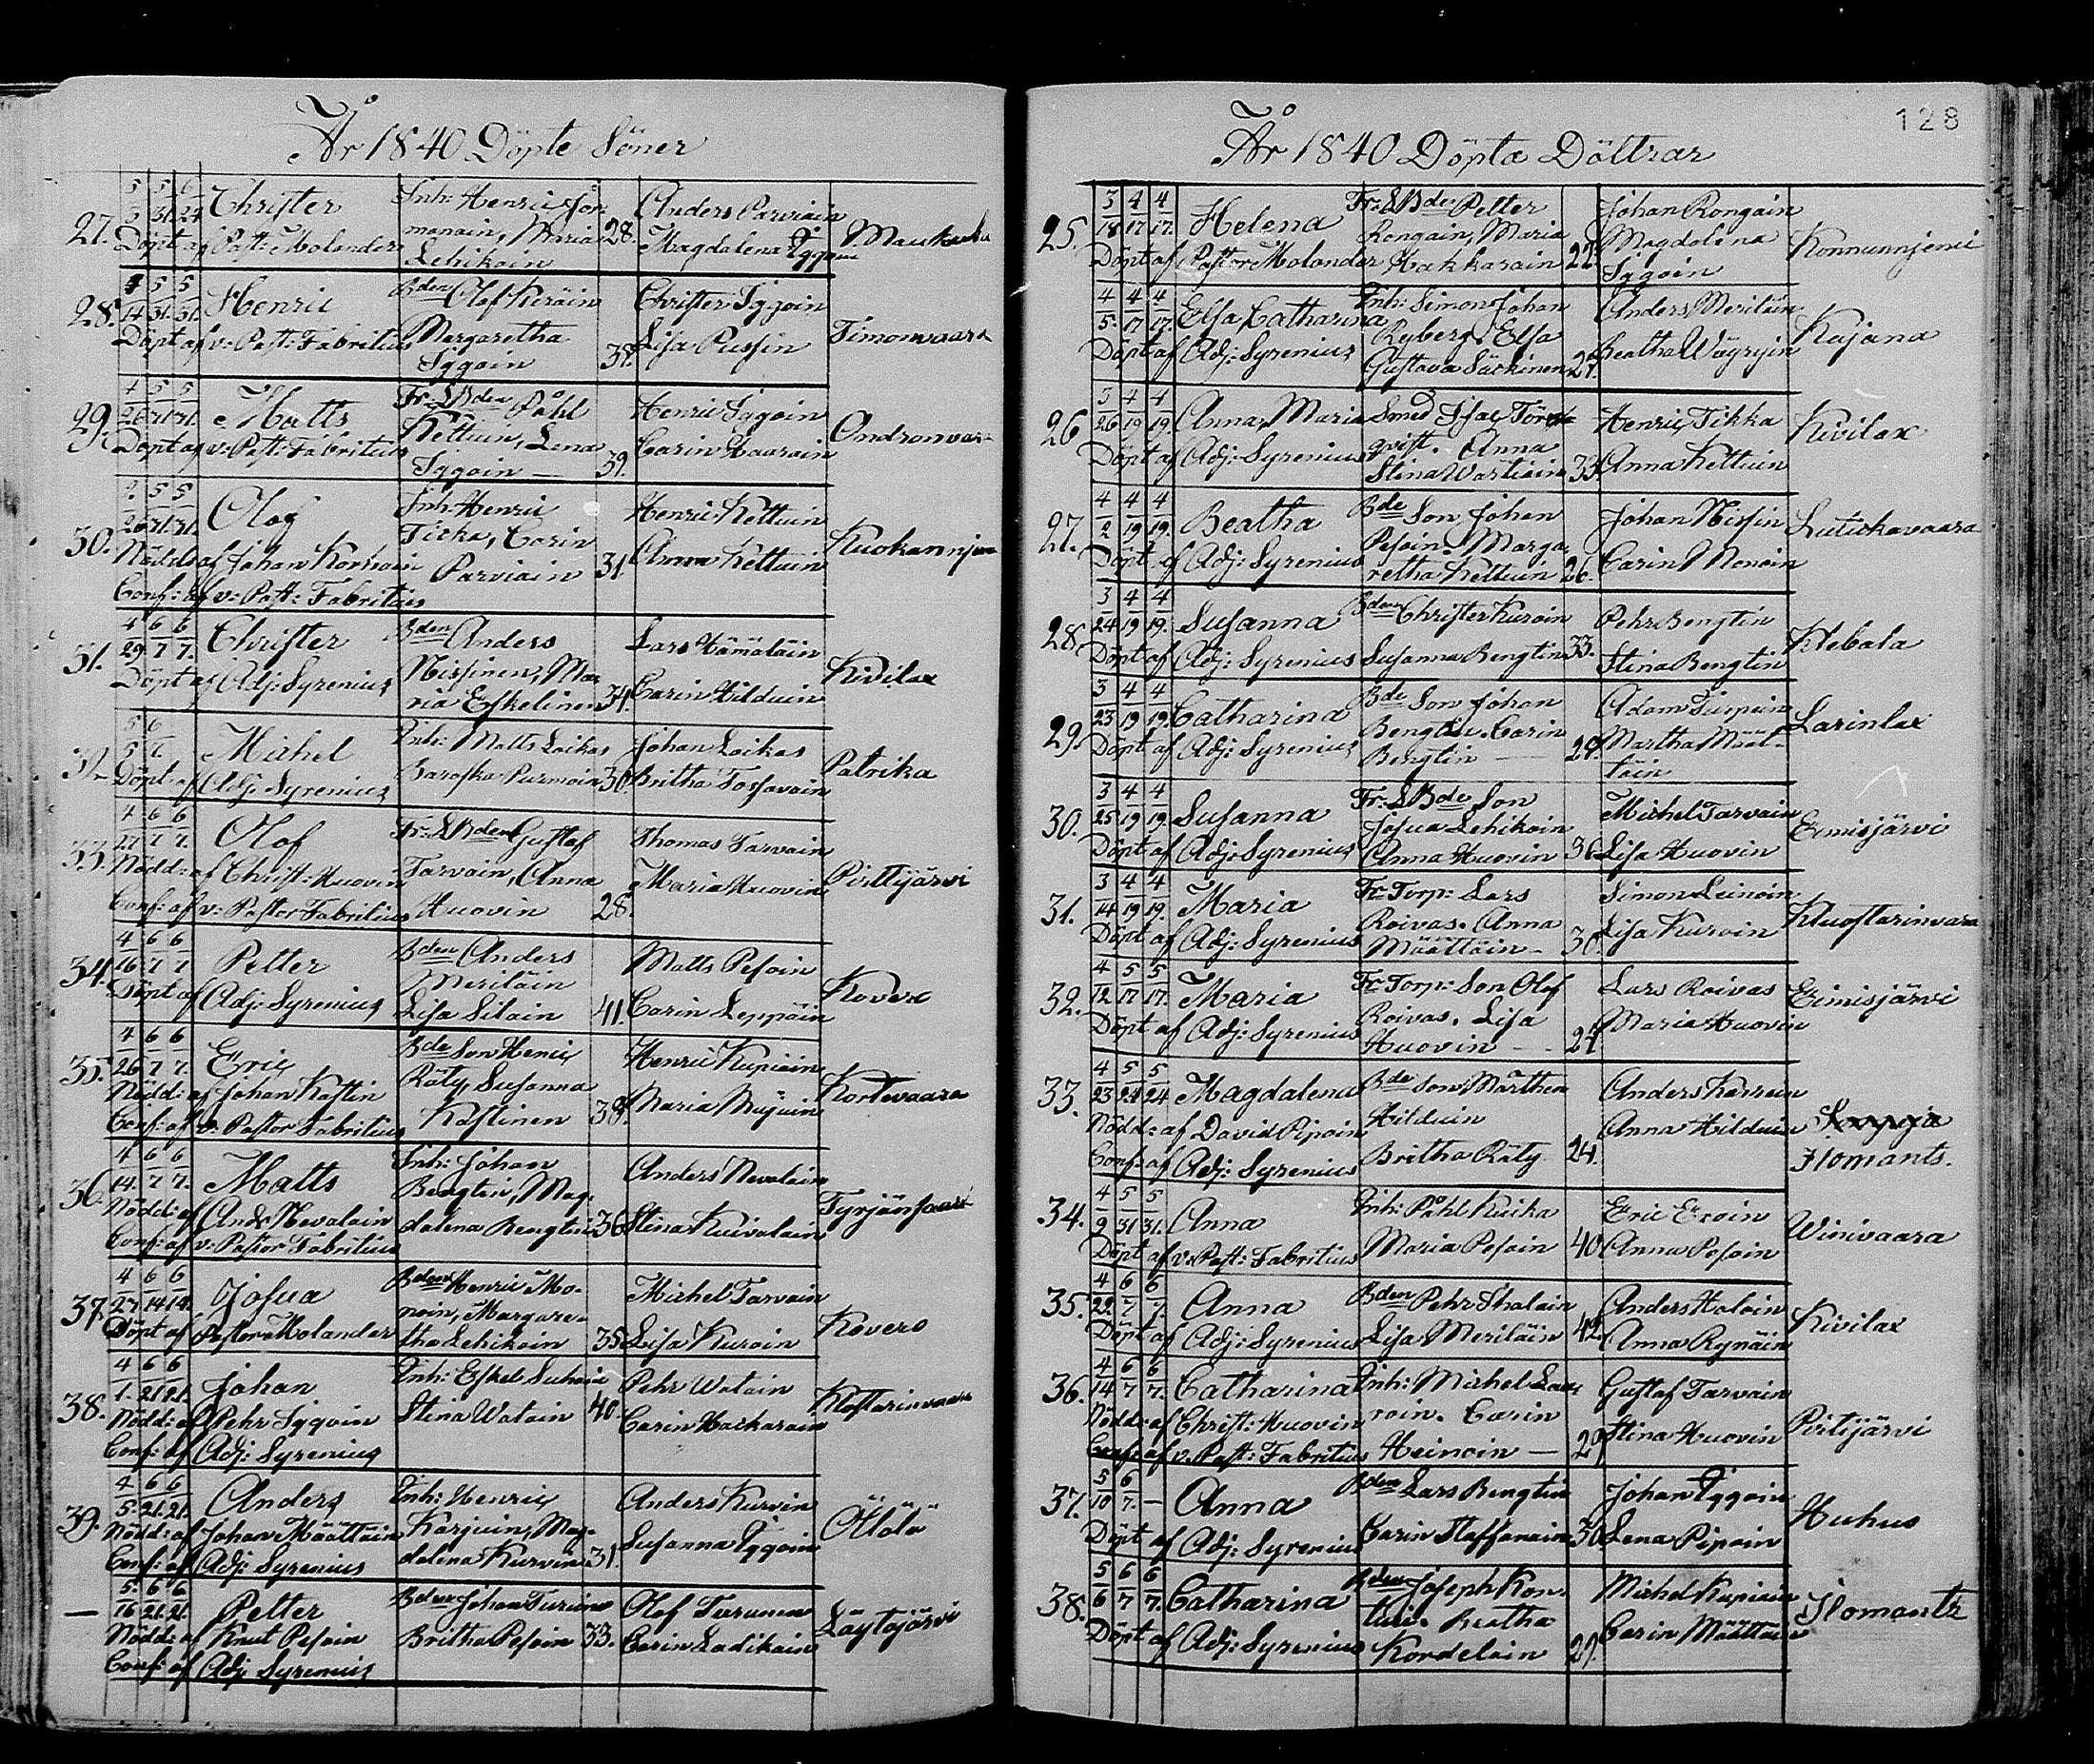 År 1840 Döpte Söner
27. 5/3 5/31. 6/24 Christer Inh: Henric Jor Anders Parviain
monain, Maria 28. Magdalena Iggoin
Döpt af Past: Molander Lehikoin
28. 4/14 5/31. 5/31. Henric Bden Olof Kuroin Christer Iggoin Timonvaara
Döpt af v: Past: Fabritius Margaretha Lisa Pussin
Iggoin 38.
29. 4/26 5/31. 5/31. Matts Fr: LBden Påhl Henric Iggoin Ondronvara
Döpt af v: Past: Fabritius Kettuin, Lena Carin Haarain
Iggoin — 39.
30. 5/31. 5/31. Olof Inh: Henric Henric Kettuin
Nödd: af Johan Korhoin Ticka, Carin Anna Kettuin
Parviain 31.
Conf: af v: Past: Fabritius
31. 4/29. 6/7 6/7. Christer Bden Anders Lars Hämäläin Kivilax
Döpt af Adj: Syrenius Nissinen, Ma Carin Hilduin
ria Eskelinen 34.
5/5 6/7. Michel Inh: Matts Loikas Johan Loikas Patrika
Döpt af Adj: Syrenius Baroska Purmoin 30. Britha Torfvoin
33. 4/27 6/7 6/7. Olof Fr: LBden Gustaf Thomas Tarvain Pirttijärvi
Nödd: af Christ: Huovin Tarvain, Anna Maria Huovin
Conf: af v: Pastor Fabritius Huovin 28.
34. 4/16 6/7 6/7 Petter Bden Anders Matts Pesoin Kovero
Meriläin
Döpt af Adj: Syrenius Lisa Siloin 41. Carin Leppäin
35. 4/26 6/7 6/7. Eric Bde Son Henric Henric Kupiain Kortevaara
Nödd: af Johan Kastin Räty, Susanna
Conf: af v: Pastor Fabritius Kastinen 38. Maria Mujuin
36. 4/14. 6/7 6/7. Matts Inh: Johan Anders Nevalain
Nödd: af And: Nevalain Bengtin, Mag-
dalena Bengtin 36. Stina Kuivalain
Conf: af v: Pastor Fabritius
37. 4/27 6/14 6/14. Josua Bden Henric Mo- Michel Tarvain Kovero
noin, Margare-
Döpt af Pastor Molander tha Lehikoin 35. Lisa Kuroin
38. 4/1. 6/21. 6/21. Johan Inh: Eskel Pehr Watain Klostarinvaara
Nödd: af Pehr Iggoin Stina Watain 40. Carin Hackarain
Conf: af Adj: Syrenius
39. 4/5. 6/21. 6/21. Anders Inh: Henric Anders Kurvin Ollola
Nödd: af Johan Määttäin Karjuin, Mag- Susanna Iggoin
Conf: af Adj: Syrenius dalena Kurvin 31.
— 5/16 6/21. 6/21. Petter Bden Johan Olof Turunen Läytäjärvi
Nödd: af Knut Pesoin Britha Pesoin 33. Carin Ladikain
Conf: af Adj: Syrenius
128
År 1840 Döpta Döttrar
25. 3/18 4/17 4/17. Helena Fr: LBden Petter Johan Rongain Konnunniemi
Rongain, Maria Magdalena
Döpt af Pastor Molander Hakkarain 22. Iggoin
4/5. 4/17 4/17. Elsa Catharina Inh: Simon Johan Anders Meriläin Kajana
Ryberg. Elsa Beatha Wäyryin
Döpt af Adj: Syrenius Gustava Säckinen 27.
26 3/26 4/19 4/19. Anna Maria Smed Isac Törn Henric Tikka Kivilax
qvist. Anna
Döpt af Adj: Syrenius Stina Wartiain 33. Anna Kettuin
27. 4/2 4/19 4/19. Beatha Bde Son Johan Johan Nissin Lutickavaara
Pesoin. Marga
Döpt af Adj: Syrenius retha Kettuin 26. Carin Monoin
28. 3/24 4/19 4/19. Susanna Bden Christer Kuroin Pehr Bengtin Klebala
Döpt af Adj: Syrenius Susanna Bengtin 33. Stina Bengtin
29. 3/23 4/19 4/19. Catharina Bde Son Johan Adam Turpein Larinlax
Bengtin. Carin Martha Määt-
Döpt af Adj: Syrenius Bengtin — 29. täin
30. 3/25 4/19 4/19. Susanna Fr: LBde Son Michel Tarvain Eimisjärvi
Josua Lehikoin
Döpt af Adj: Syrenius Anna Huovin 36. Lisa Huovin
31. 3/14 4/19 4/19. Maria Fr Torp: Lars Simon Leinoin Kluostarinvara
Roivas. Anna
Döpt af Adj: Syrenius Määttäin — 30. Lisa Kuroin
32. 4/12 5/17 5/17. Maria Fr Torp: Son Olof Lars Roivas Eimisjärvi
Roivas. Lisa Maria Huovin
Döpt af Adj: Syrenius Huovin — 27.
33. 4/23 5/24 5/24 Magdalena Bde Son Marthen Anders
Nödd: af David Pipoin Hilduin Anna Hilduin
Conf: af Adj: Syrenius Britha Räty 24. Ilomants.
34. 4/9 5/31 5/31. Anna Inh: Påhl Kuika Eric Eroin Winivaara
Döpt af v: Past: Fabritius Maria Pesoin 40. Anna Pesoin
35. 4/22. 6/7 6/7. Anna Bden Pehr Ihalain Anders Haloin Kivilax
Döpt af Adj: Syrenius Lisa Meriläin 42. Anna Rynäin
36. 4/14 6/7 6/7. Catharina Inh: Michel Laa Gustaf Tarvain Pirttijärvi
Nödd: af Christ: Huovin roin. Carin Stina Huovin
Conf: af v. Past: Fabritius Heinoin — 29.
37. 5/10 6/7. — Anna Bden Lars Bengtin Johan Iggoin Huhus
Döpt af Adj: Syrenius Carin Staffanain 30. Lena Pipoin
38. 5/6 6/7 6/7. Catharina Bden Joseph Kon- Michel Kupiain Ilomants
tuin. Beatha
Döpt af Adj: Syrenius Kordelain 29. Carin Määttäin